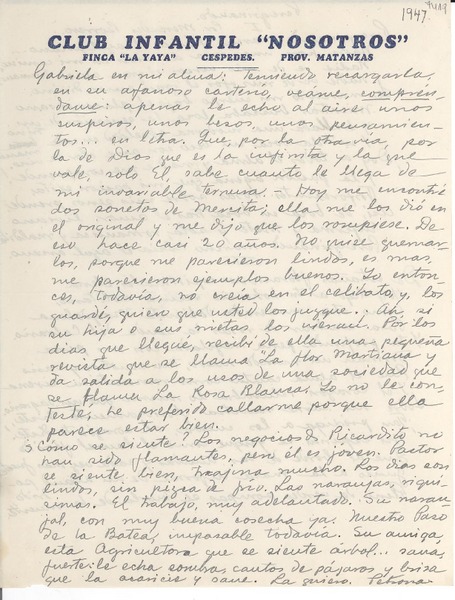 1947.
CLUB INFANTIL "NOSOTROS"
FINCA "LA YAYA" CESPEDES. PROV. MATANZAS
Gabriela en mi alma: temiendo recargarla,
en su afanoso carterío, véame, comprén-
dame: apenas le echo al aire unos
suspiros, unos besos, unos pensamien-
tos... en letra. Que, por la otra vía, por
la de Dios que es la infinita y la que
vale, solo El, sabe cuanto le llega de
mi invariable ternura. - Hoy me encontré
dos sonetos de Mercita; ella me los dió en
el original y me dijo que los rompiese. De
eso hace casi 20 años. No quise quemar-
los, porque me parecieron lindos, es mas,
me parecieron ejemplos buenos. Yo enton-
ces, todavía, no creía en el celibato y, los
guardé, quiero que usted los juzgue. Ah, si
su hija o sus nietas los vieran. Por los
días que llegué, recibí de ella una pequeña
revista que se llama "La Flor Martiana y
da salida a los usos de una sociedad que
se llama La Rosa Blanca. Yo no le con-
testé, he preferido callarme porque ella
parece estar bien.
¿Cómo se siente? Los negocios de Ricardito no
han sido flamantes, pero él es joven. Pastor
se siente bien, trajina mucho. Los días son
lindos, sin pizca de frío. Las naranjas, riquí-
simas. El trabajo, muy adelantado. Su naran-
jal, con muy buena cosecha ya. Nuestro Paso
de la Batea, impasable todavía. Su amiga,
esta Agricultora que se siente árbol... sana,
fuerte: le echa sombra, cantos de pájaros y brisa
que la acaricie y sane. La quiero. Petrona.